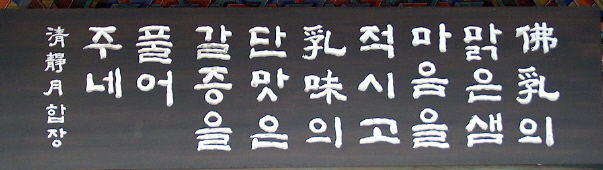 佛乳의
맑은샘
마음을
적시고
乳味의
단맛은
갈증을
풀어
주네
清靜月합장